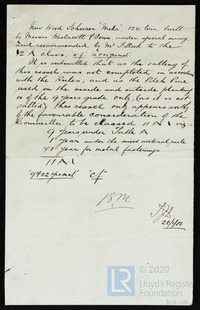 New Wood Schooner "Meda", 124 tons, built
by Messrs Westacott & Sons, under special survey
and recommended by Mr Pollock to the
It is submitted that as the salting of
this vessel was not completed in accord.
with the Rules, and as the Pitch Pine
used in the inside and outside planking
is of the 9 years grade only (as it is not
salted) this vessel only appears worthy
of the favourable consideration of the
Committee to be classed 11 A viz
9 years under Table A
1 year under the mixed material rule
+1 year for metal fastenings
11 A1
© 2020
Lloyd's Register
Foundation